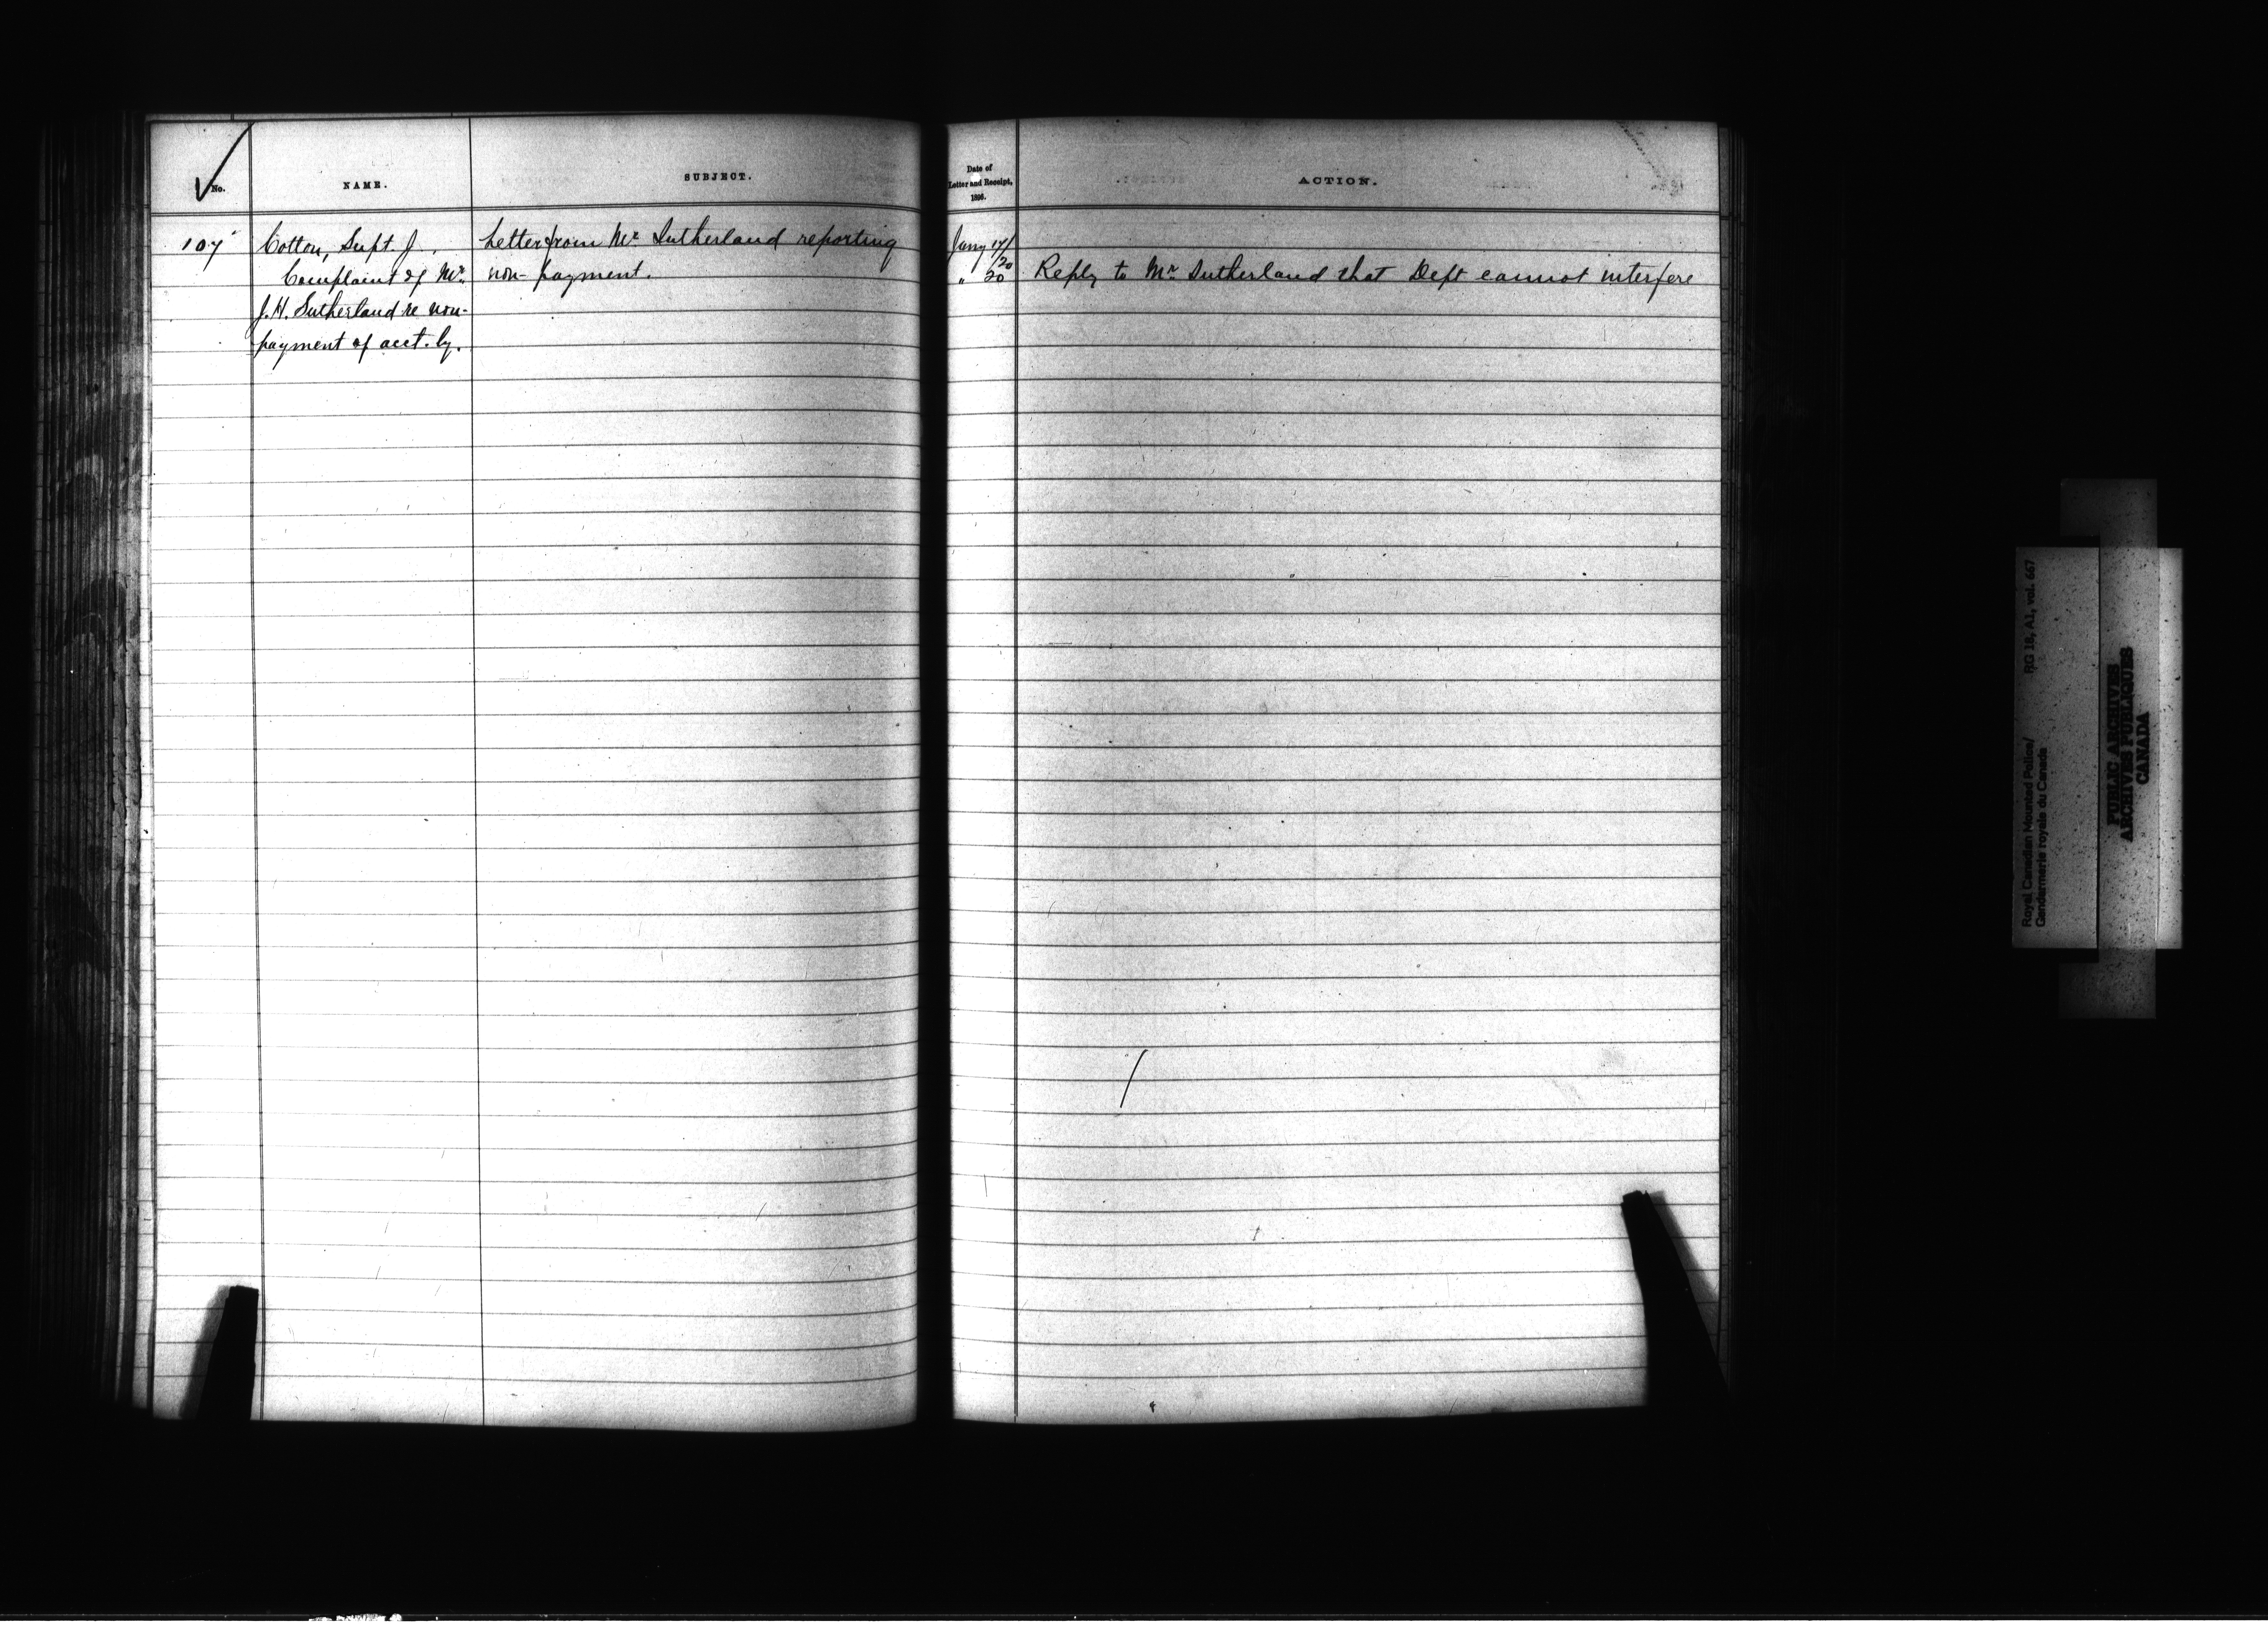 No.
NAME.
SUBJECT.
Date of
Letter and Receipt,
1896.
ACTION.
107
Cotton, Supt. J.
Complaint of Mr.
J.H. Sutherland re non-
payment of acct. by.
Letter from Mr. Sutherland reporting
non-payment.
Jany 17/20
" 20
Reply to Mr. Sutherland that Dept cannot interfere
Royal Canadian Mounted Police/ RG 18, A1, vol. 667
Gendarmerie royale du Canada
PUBLIC ARCHIVES
ARCHIVES PUBLIQUES
CANADA